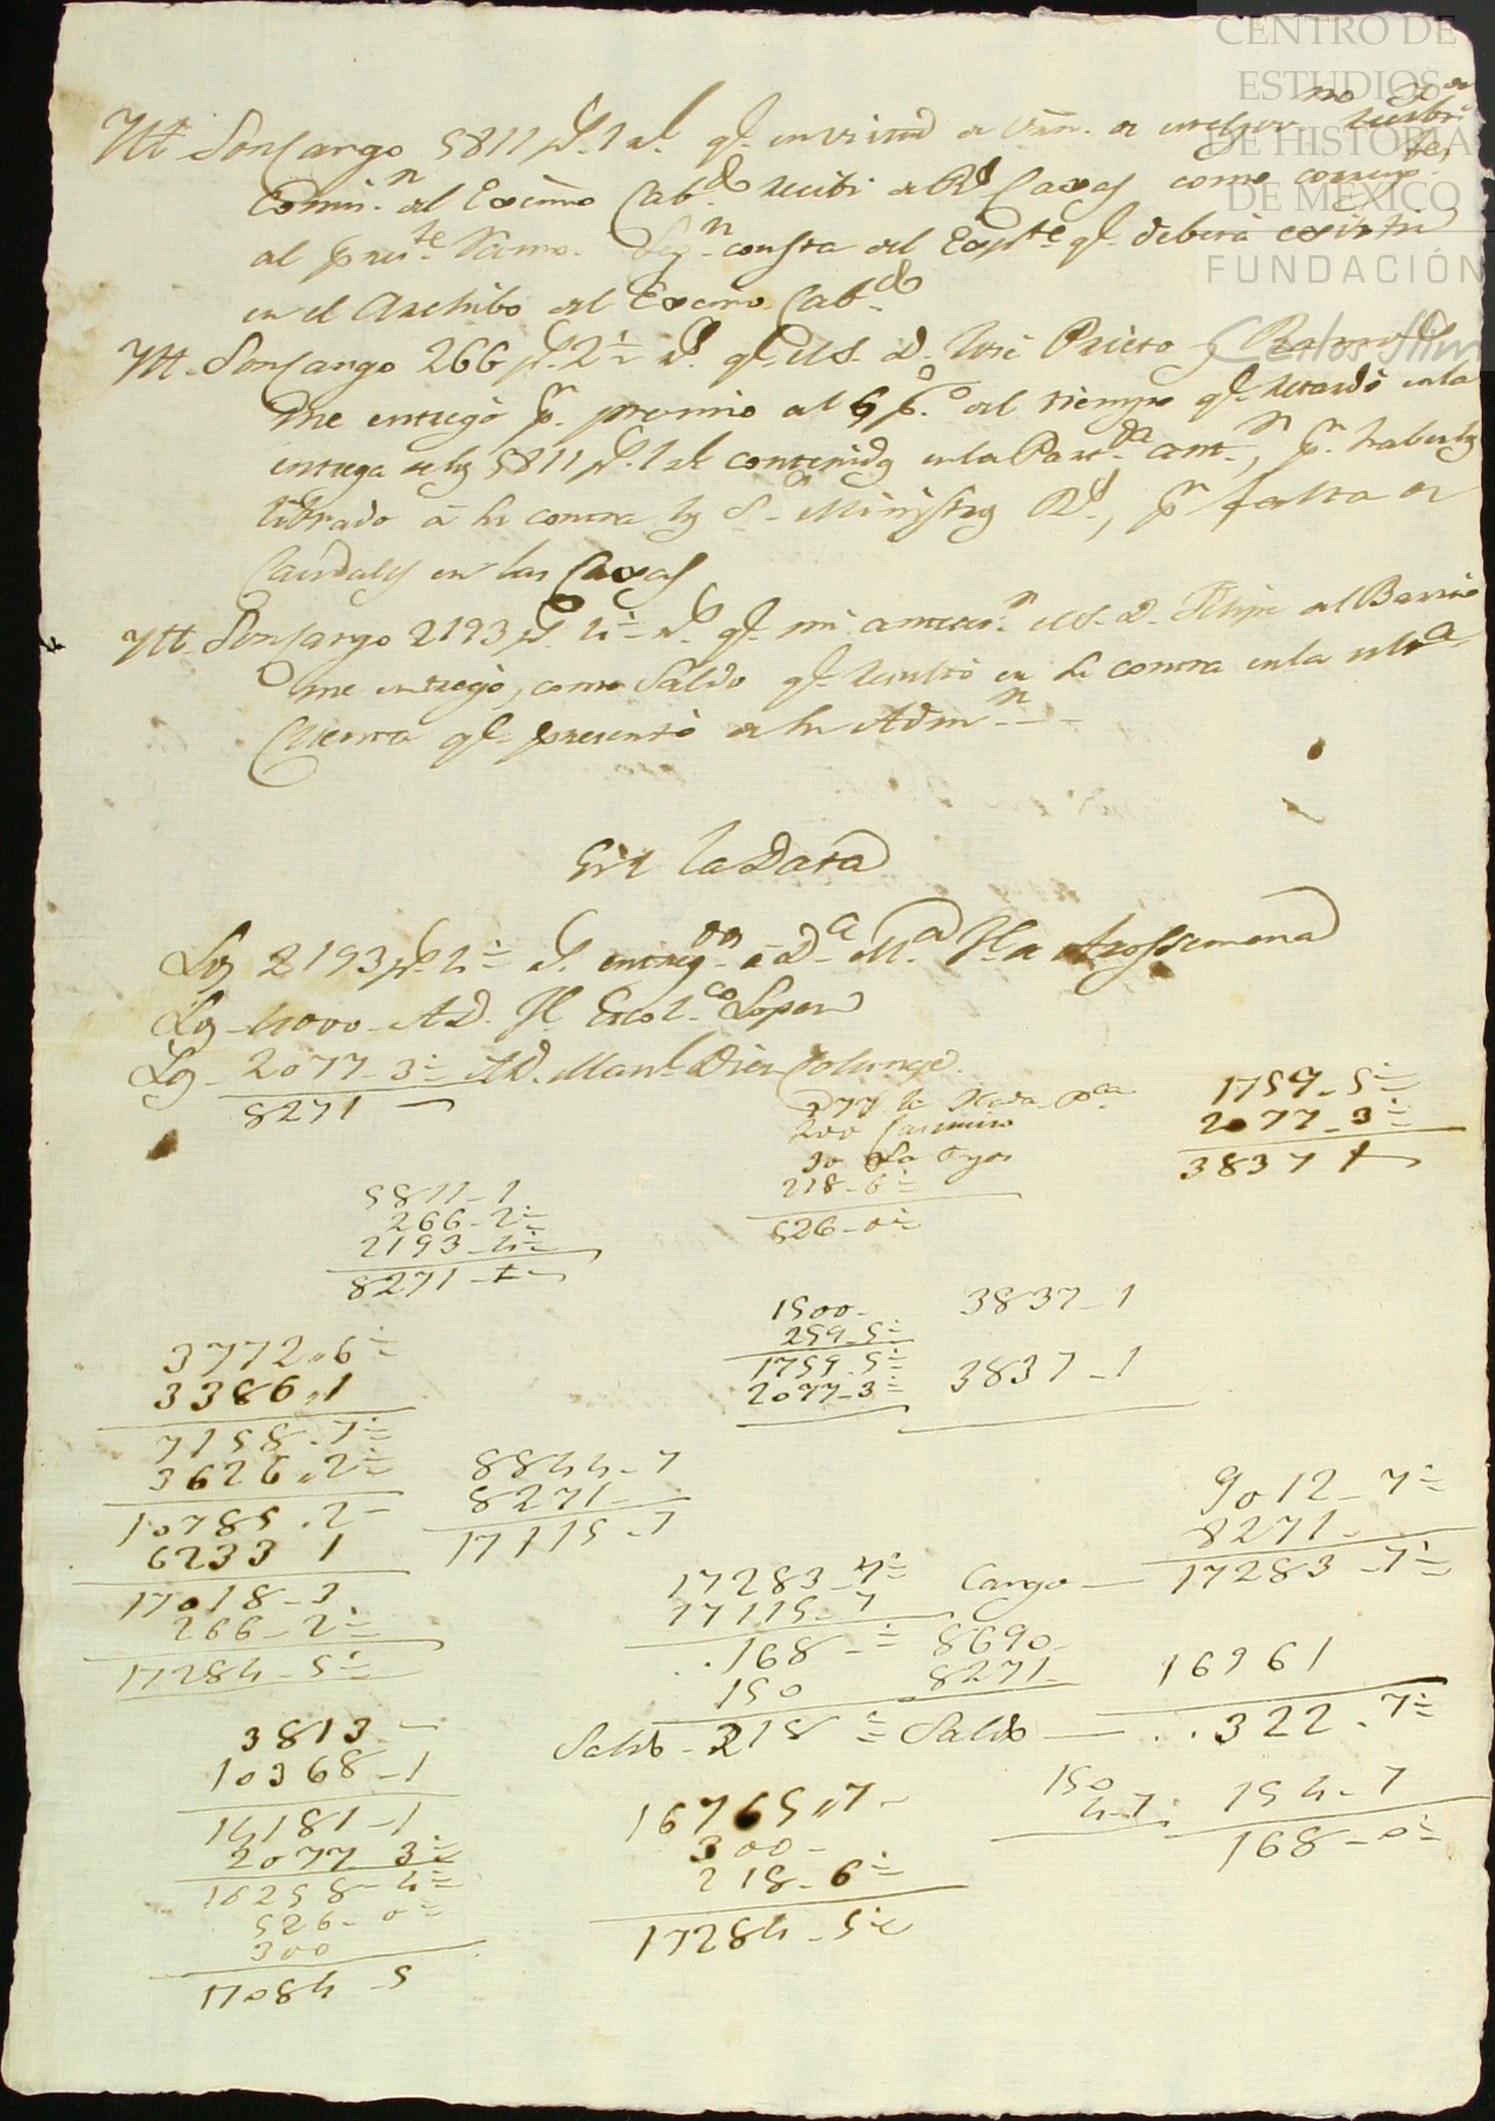 CENTRO DE
ESTUDIOS
DE HISTORIA
DE MÉXICO
FUNDACIÓN
Carlos Slim
Ytt. Son Cargo 5811 ps. 1 rl. qe. en virtud de
Comis.n del Excmo Cab.do recibi de Rs Caxas como
al pres.te Ramo. Seg.n consta del Exp.te qe. deberá existir
en el Archibo del Excmo. Cab.do
Ytt. Son Cargo 266 ps. 2 ½ rs. qe. el S. D. José Prieto y Ramos
me entregó pr. premio al 6 p.o del tiempo qe. retardó en la
entrega de los 5811 ps. 1 rl. contenidos en la Part.da ant.r, pr. haberlos
librado á su contra los S.s Ministros Rs., pr falta de
Caudales en las Caxas
Ytt. Son Cargo 2193 ps. 4 ½ rs. qe. mi antecesr. el S. D. Felipe del Barrio
me entregó, como Saldo qe. resultó en su contra en la ultª
Cuenta qe. presentó de su Admn.
En la Data
Los 2193 ps. 4 ½ rs. entreg.dos á Dª Mª
Los 4000 A D. Lopez
Los 2077 - 3 ½ A D. Manl. Diez Colunga.
8271
277 la
200 Casimiro
30
218 - 6 ½
526 - 0 ½
1759 - 5 ½
2077 - 3 ½
3837 1
5811 - 1
266 - 2 ½
2193 - 4 ½
8271 -
1500 -
259 - 5 ½
1759 - 5 ½
2077 - 3 ½
3837 - 1
3837 - 1
3772 ,, 6 ½
3386 ,, 1
7158 . 7 ½
3626 ,, 2 ½
10785 . 2
6233 1
17018 - 3
266 - 2 ½
17284 - 5 ½
8844 - 7
8271 -
17115 - 7
9012 - 7 ½
8271 -
Cargo — 17283 - 7 ½
17283 - 7 ½
17115 - 7
168 - ½
150
Saldo - 318 ½
8690 -
8271 -
16961
Saldo — 322 . 7 ½
3813 -
10368 - 1
14181 - 1
2077 3 ½
16258 - 4 ½
526 - 0 ½
300
17084 - 5
16765 ,, 7 -
300 -
218 - 6 ½
17284 - 5 ½
150
4 - 7
154 - 7
168 - 0 ½